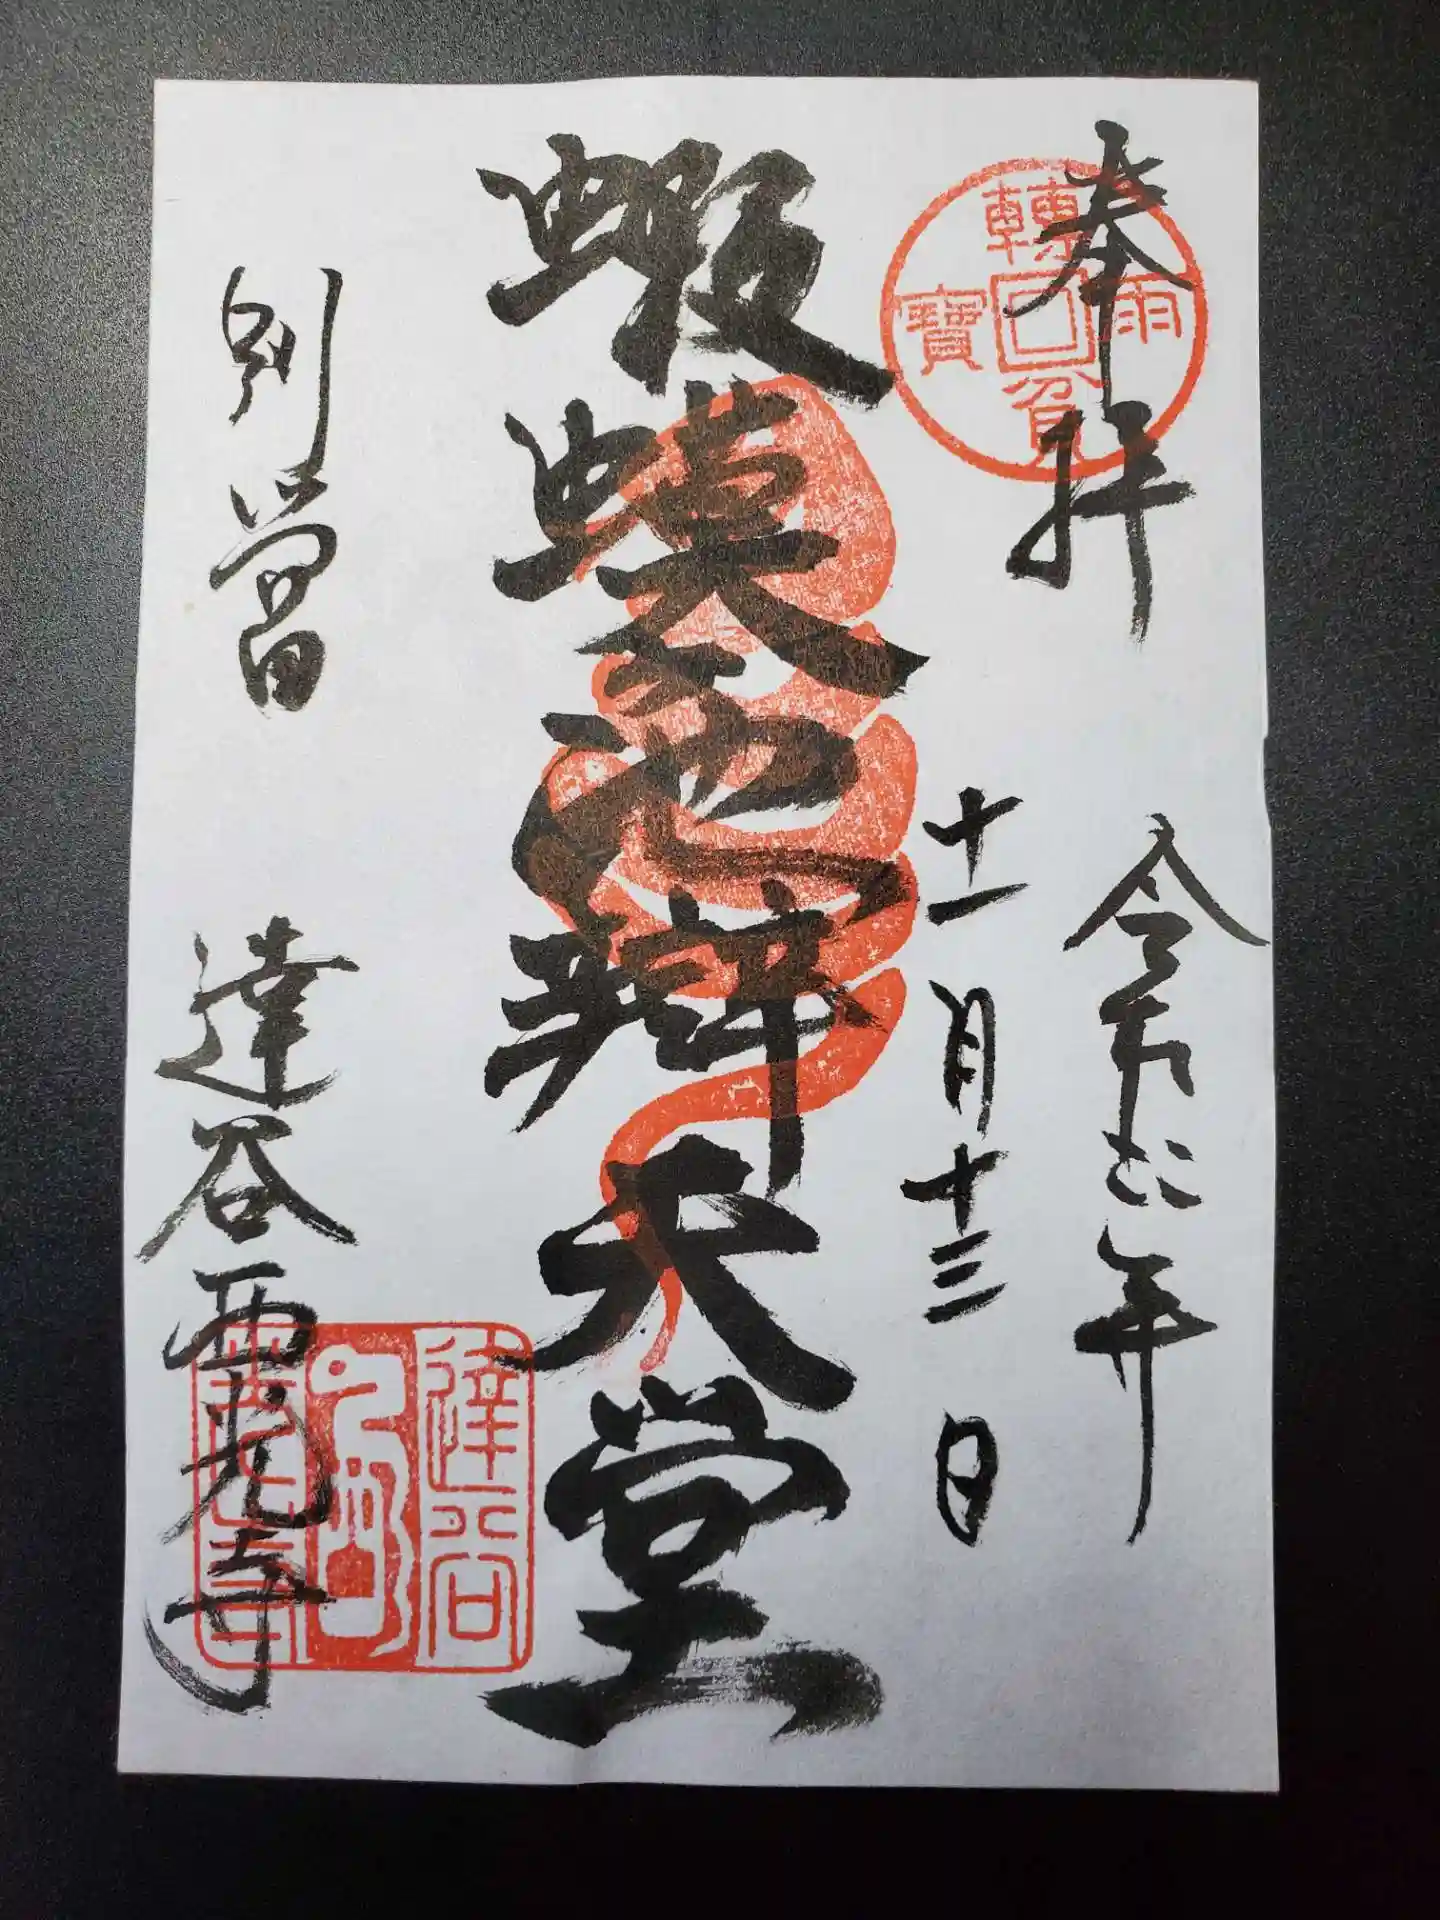 奉拝
令和二年
十一月十三日
蝦蟆ヶ池辯天堂
別當
達谷西光寺
轉雨貧寶
達谷
西光寺